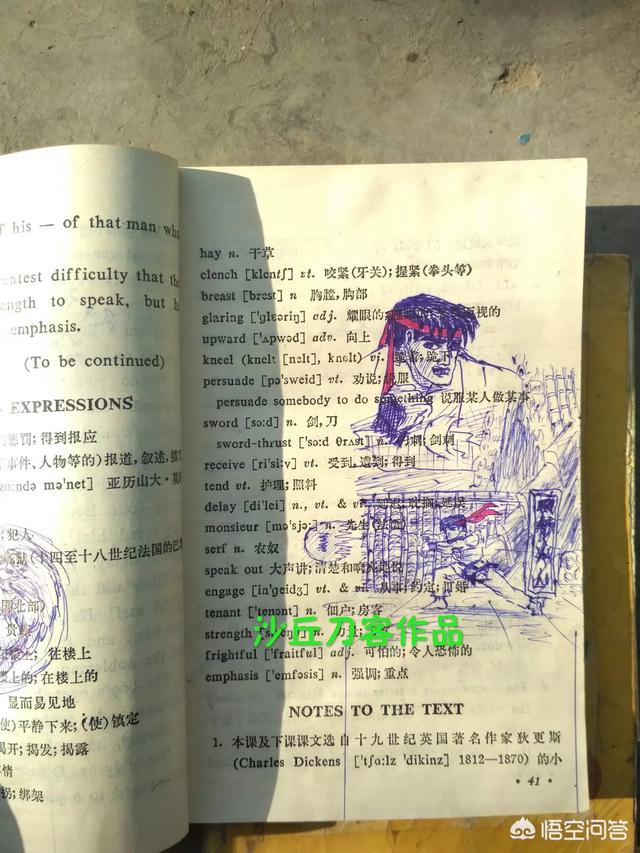 f his — of that man who
eatest difficulty that the
ength to speak, but he
emphasis.
(To be continued)
EXPRESSIONS
惩罚；得到报应
事件、人物等的）报道，叙述，描
mə'net] 亚历山大·莫
犯人
（十四至十八世纪法国的巴
国北部）
贵族
往楼上
上的；在楼上的
显而易见地
使）平静下来；（使）镇定
揭开；揭发；揭露
事情
拐；绑架
hay n. 干草
clench [klentʃ] vt. 咬紧（牙关）；握紧（拳头等）
breast [brest] n 胸膛，胸部
glaring ['glɛəriŋ] adj. 耀眼的，视的
upward ['ʌpwəd] adv. 向上
kneel (knelt [nɛlt], knelt) vi. 跪下
persuade [pə'sweid] vt. 劝说；说服
persuade somebody to do something 说服某人做某事
sword [sɔ:d] n. 剑，刀
sword-thrust ['sɔ:d θrʌst] n. 刺；剑刺
receive [ri'si:v] vt. 受到，遭到；得到
tend vt. 护理；照料
delay [di'lei] n., vt. & vi. 延误
monsieur [mə'sjə:] n. 先生
serf n. 农奴
speak out 大声讲；清楚和响亮地说
engage [in'geidʒ] vt. & vi. 从事；约定；订婚
tenant ['tenənt] n. 佃户；房客
strength n. 力
沙丘刀客作品
frightful ['fraitful] adj. 可怕的；令人恐怖的
emphasis ['emfəsis] n. 强调；重点
NOTES TO THE TEXT
1. 本课及下课课文选自十九世纪英国著名作家狄更斯
(Charles Dickens ['tʃɑ:lz 'dikinz] 1812—1870) 的小
· 41 ·
悟空问答